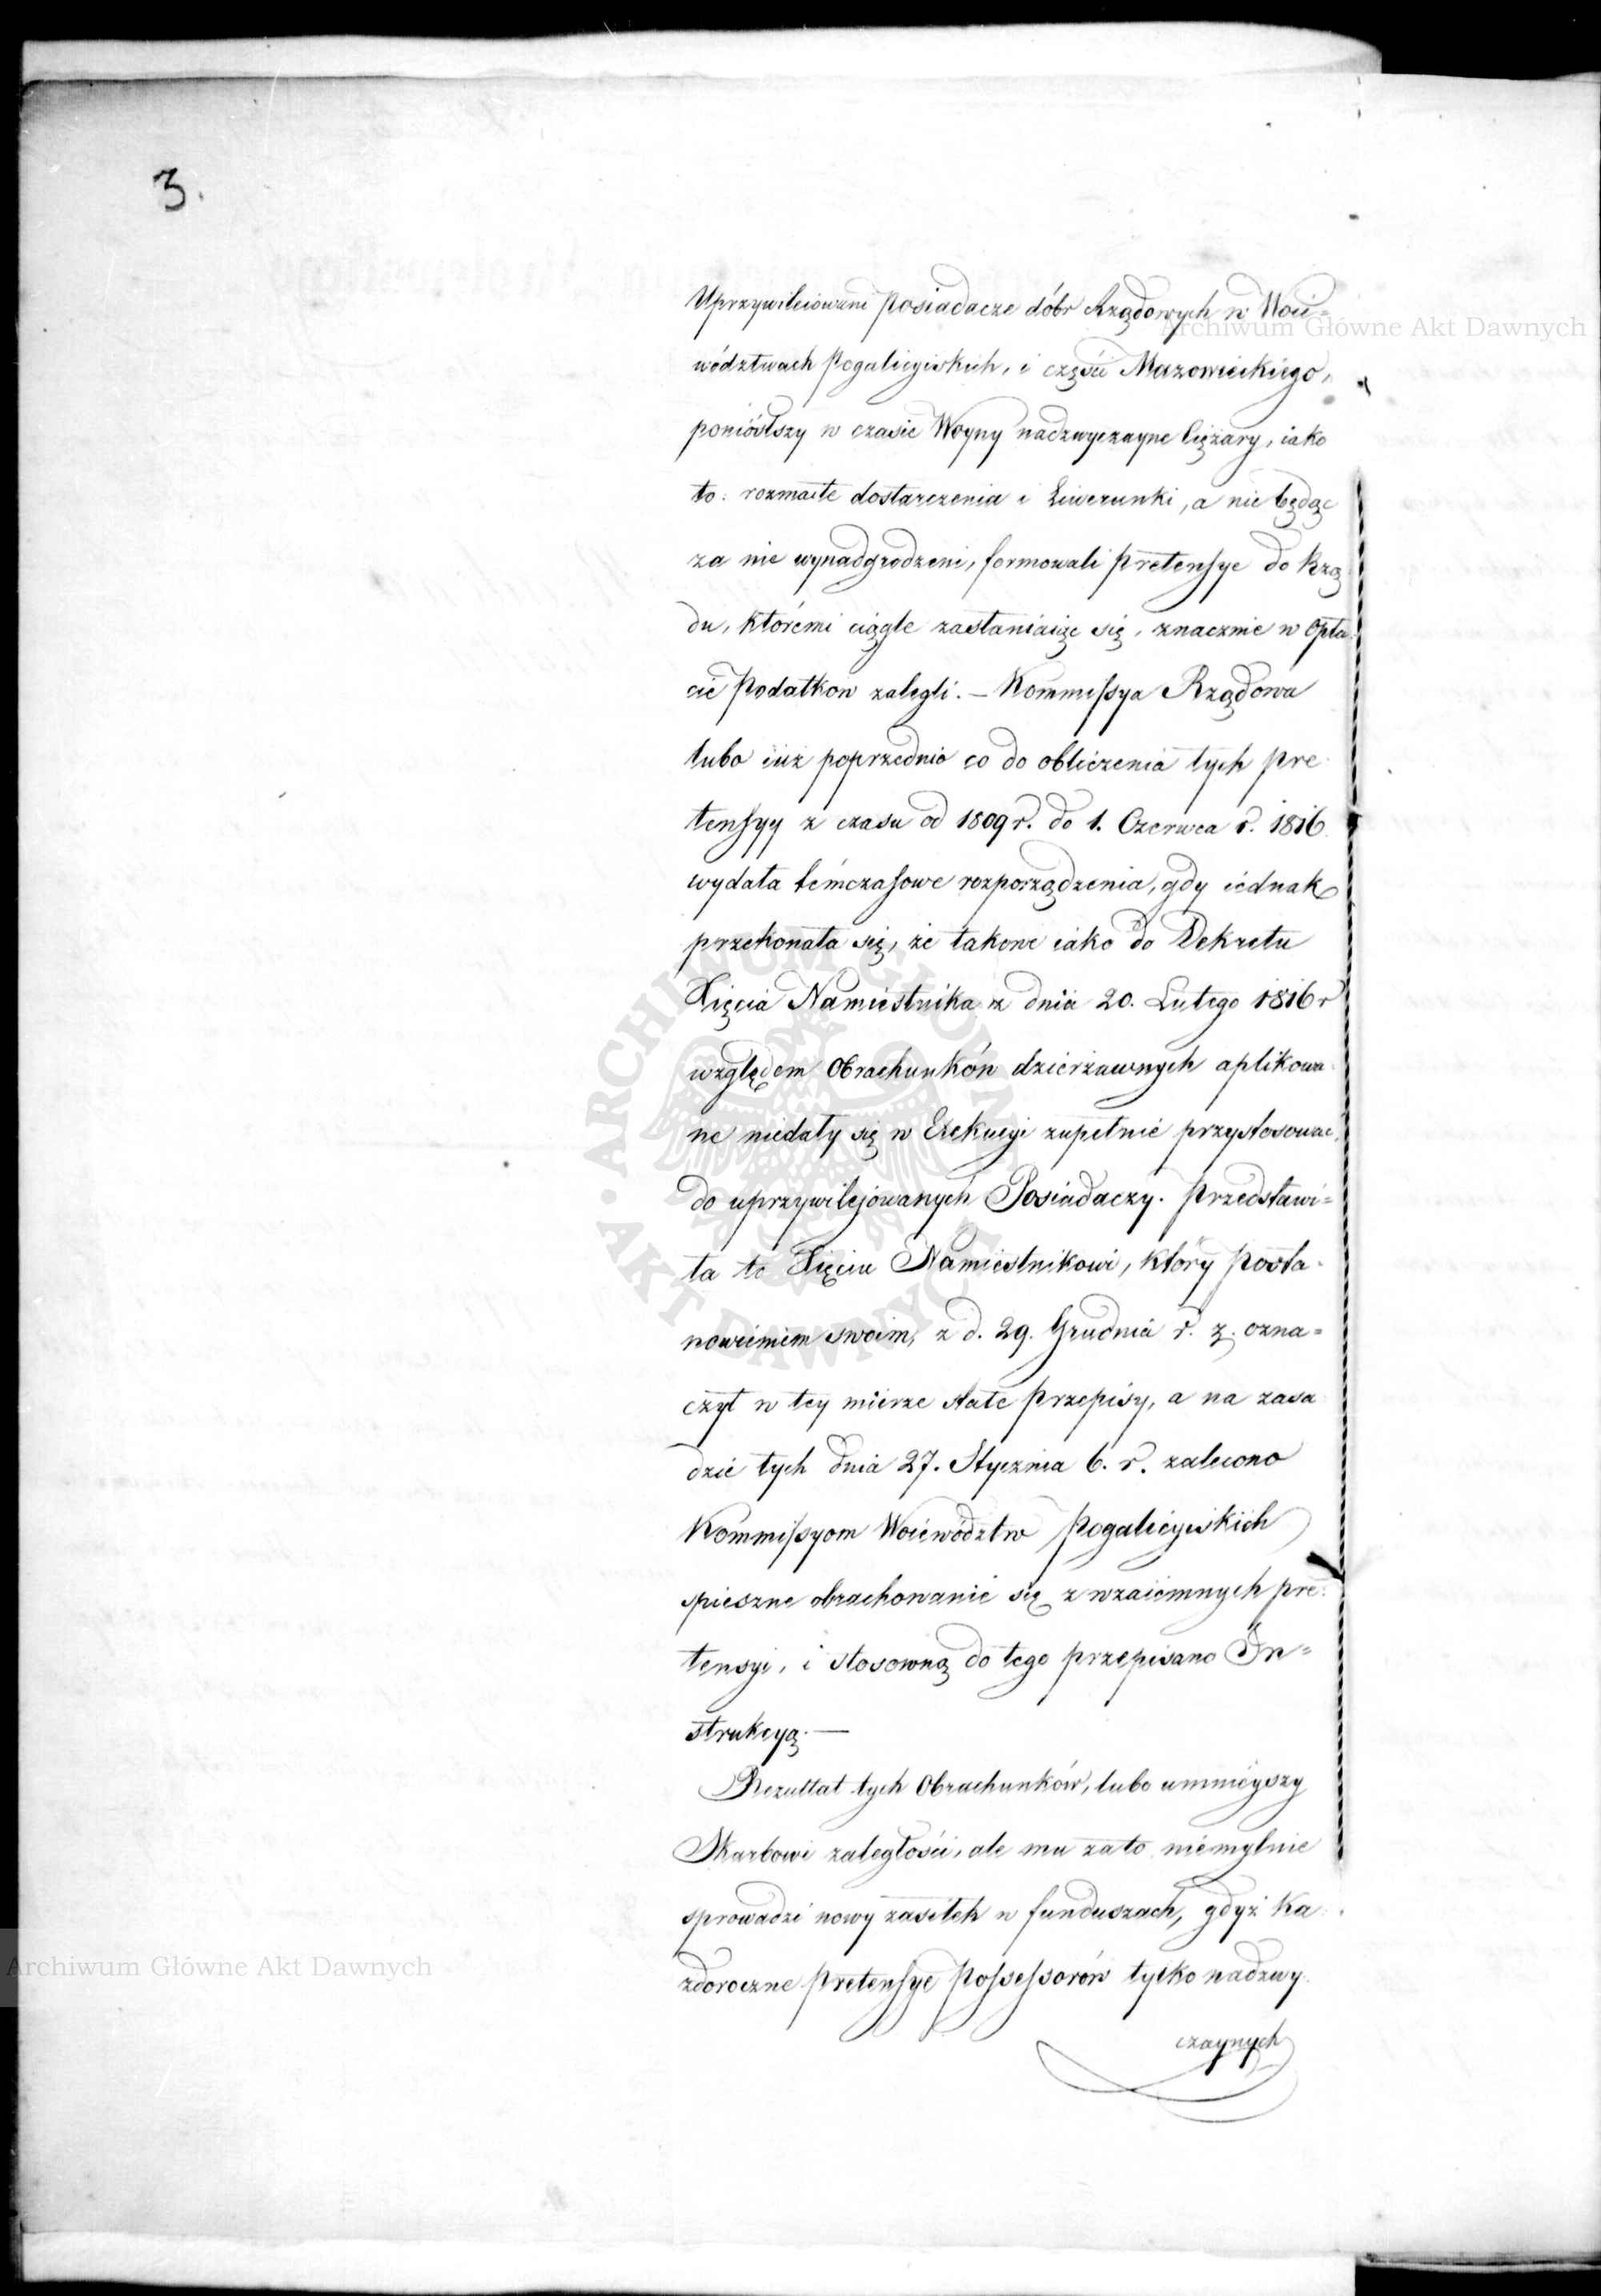 3.
Uprzywileiowani Posiadacze dóbr Rządowych w Woie=
wództwach Pogalicyiskich, i części Mazowieckiego,
poniósłszy w czasie Woyny nadzwyczayne Ciężary, iako
to: rozmaite dostarczenia i Liwerunki, a nie będąc
za nie wynadgrodzeni, formowali pretensye do Rzą
du, któremi ciągle zasłaniaiąc się, znacznie w Opła
cie Podatkow zalegli. — Kommissya Rządowa
lubo iuż poprzednio co do obliczenia tych pre
tensyy z czasu od 1809 r. do 1. Czerwca r. 1816
wydała témczasowe rozporządzenia, gdy iednak
przekonała się, że takowe iako do Dekretu
Xięcia Namiestnika z dnia 20. Lutego 1816 r
względem Obrachunków dzierżawnych aplikowa
ne niedały się w Exekucyi zupełnie przystosować,
do uprzywilejowanych Posiadaczy. Przedstawi=
ła to Xięciu Namiestnikowi, który Posta-
nowieniem swoim, z d. 29. Grudnia r. z. ozna=
czył w tey mierze stałe Przepisy, a na zasa
dzie tych dnia 27. Stycznia b. r. zalecono
Kommissyom Woiewództw Pogalicyiskich
spieszne obrachowanie się z wzaiemnych pre-
tensyi, i stosowną do tego przepisano In=
strukcyą. —
Rezultat tych Obrachunków, lubo umnieyszy
Skarbowi zaległości, ale mu zato niemylnie
sprowadzi nowy zasiłek w funduszach, gdyż Ka
żdoroczne pretensye Possessorów tylko nadzwy
czaynych
Archiwum Główne Akt Dawnych
Archiwum Główne Akt Dawnych
ARCHIWUM GŁÓWNE · AKT DAWNYCH ·